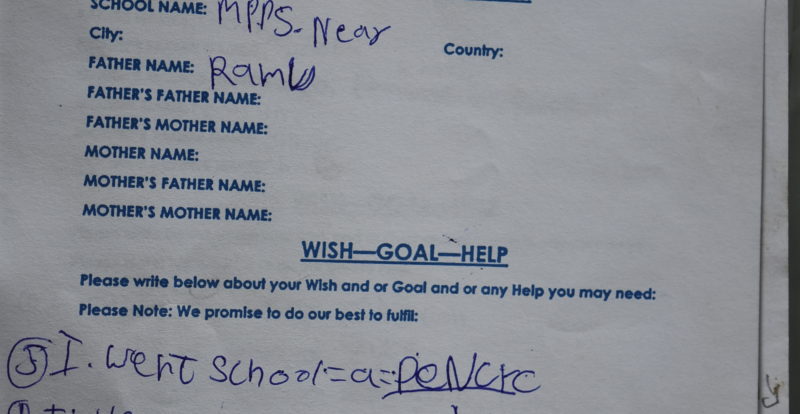 SCHOOL NAME: MPPS. Near
City:
Country:
FATHER NAME: Ramu
FATHER'S FATHER NAME:
FATHER'S MOTHER NAME:
MOTHER NAME:
MOTHER'S FATHER NAME:
MOTHER'S MOTHER NAME:
WISH—GOAL—HELP
Please write below about your Wish and or Goal and or any Help you may need:
Please Note: We promise to do our best to fulfil:
I. went school=a=